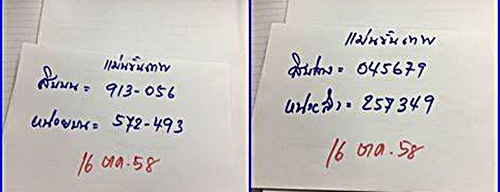 แม่นขั้นเทพ
สิบบน = 913-056
หน่วยบน = 572-493
16 ตค. 58
แม่นขั้นเทพ
สิบล่าง = 045679
หน่วยล่าง = 257349
16 ตค. 58